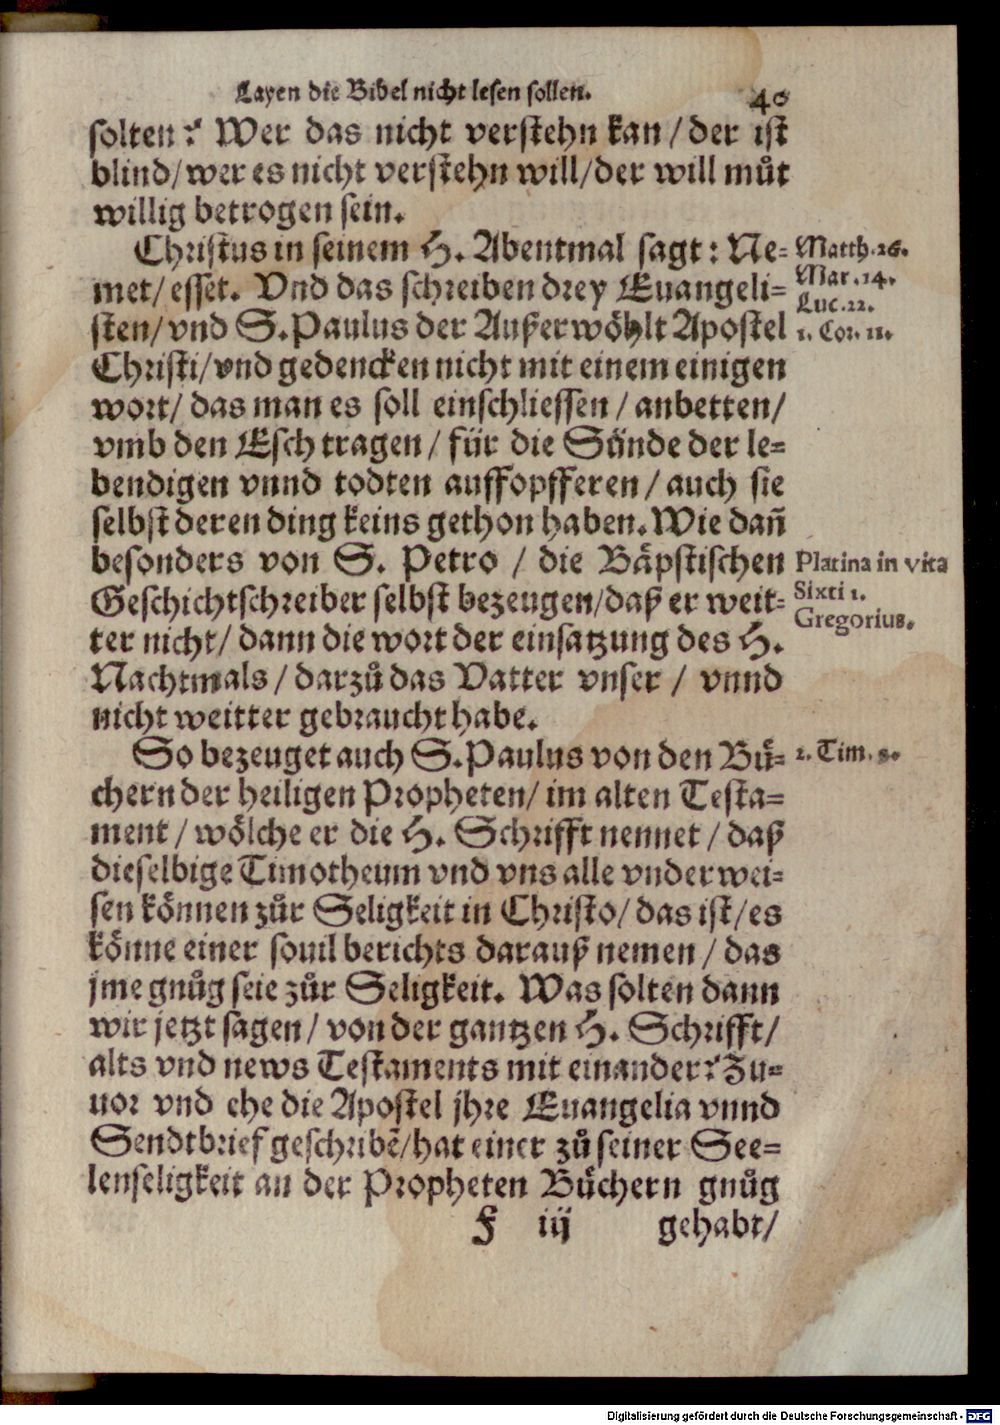 Layen die Bibel nicht lesen sollen. 40
solten? Wer das nicht verstehn kan/ der ist
blind/ wer es nicht verstehn will/ der will můt
willig betrogen sein.
Christus in seinem H. Abentmal sagt: Ne-
met/ esset. Vnd das schreiben drey Euangeli-
sten/ vnd S. Paulus der Außerwöhlt Apostel
Christi/ vnd gedencken nicht mit einem einigen
wort/ das man es soll einschliessen / anbetten/
vmb den Esch tragen/ für die Sünde der le-
bendigen vnnd todten auffopfferen/ auch sie
selbst deren ding keins gethon haben. Wie dañ
besonders von S. Petro / die Bäpstischen
Geschichtschreiber selbst bezeugen/ daß er weit-
ter nicht/ dann die wort der einsatzung des H.
Nachtmals/ darzů das Vatter vnser / vnnd
nicht weitter gebraucht habe.
So bezeuget auch S. Paulus von den Bü-
chern der heiligen Propheten/ im alten Testa-
ment / wölche er die H. Schrifft nennet / daß
dieselbige Timotheum vnd vns alle vnderwei-
sen können zůr Seligkeit in Christo/ das ist/ es
könne einer souil berichts darauß nemen / das
jme gnůg seie zůr Seligkeit. Was solten dann
wir jetzt sagen/ von der gantzen H. Schrifft/
alts vnd news Testaments mit einander? Zu-
uor vnd ehe die Apostel jhre Euangelia vnnd
Sendtbrief geschribẽ/ hat einer zů seiner See-
lenseligkeit an der Propheten Büchern gnůg
F iij gehabt/
Matth. 26.
Mar. 14.
Luc. 22.
1. Cor. 11.
Platina in vita
Sixti 1.
Gregorius.
2. Tim. 3.
Digitalisierung gefördert durch die Deutsche Forschungsgemeinschaft - DFG